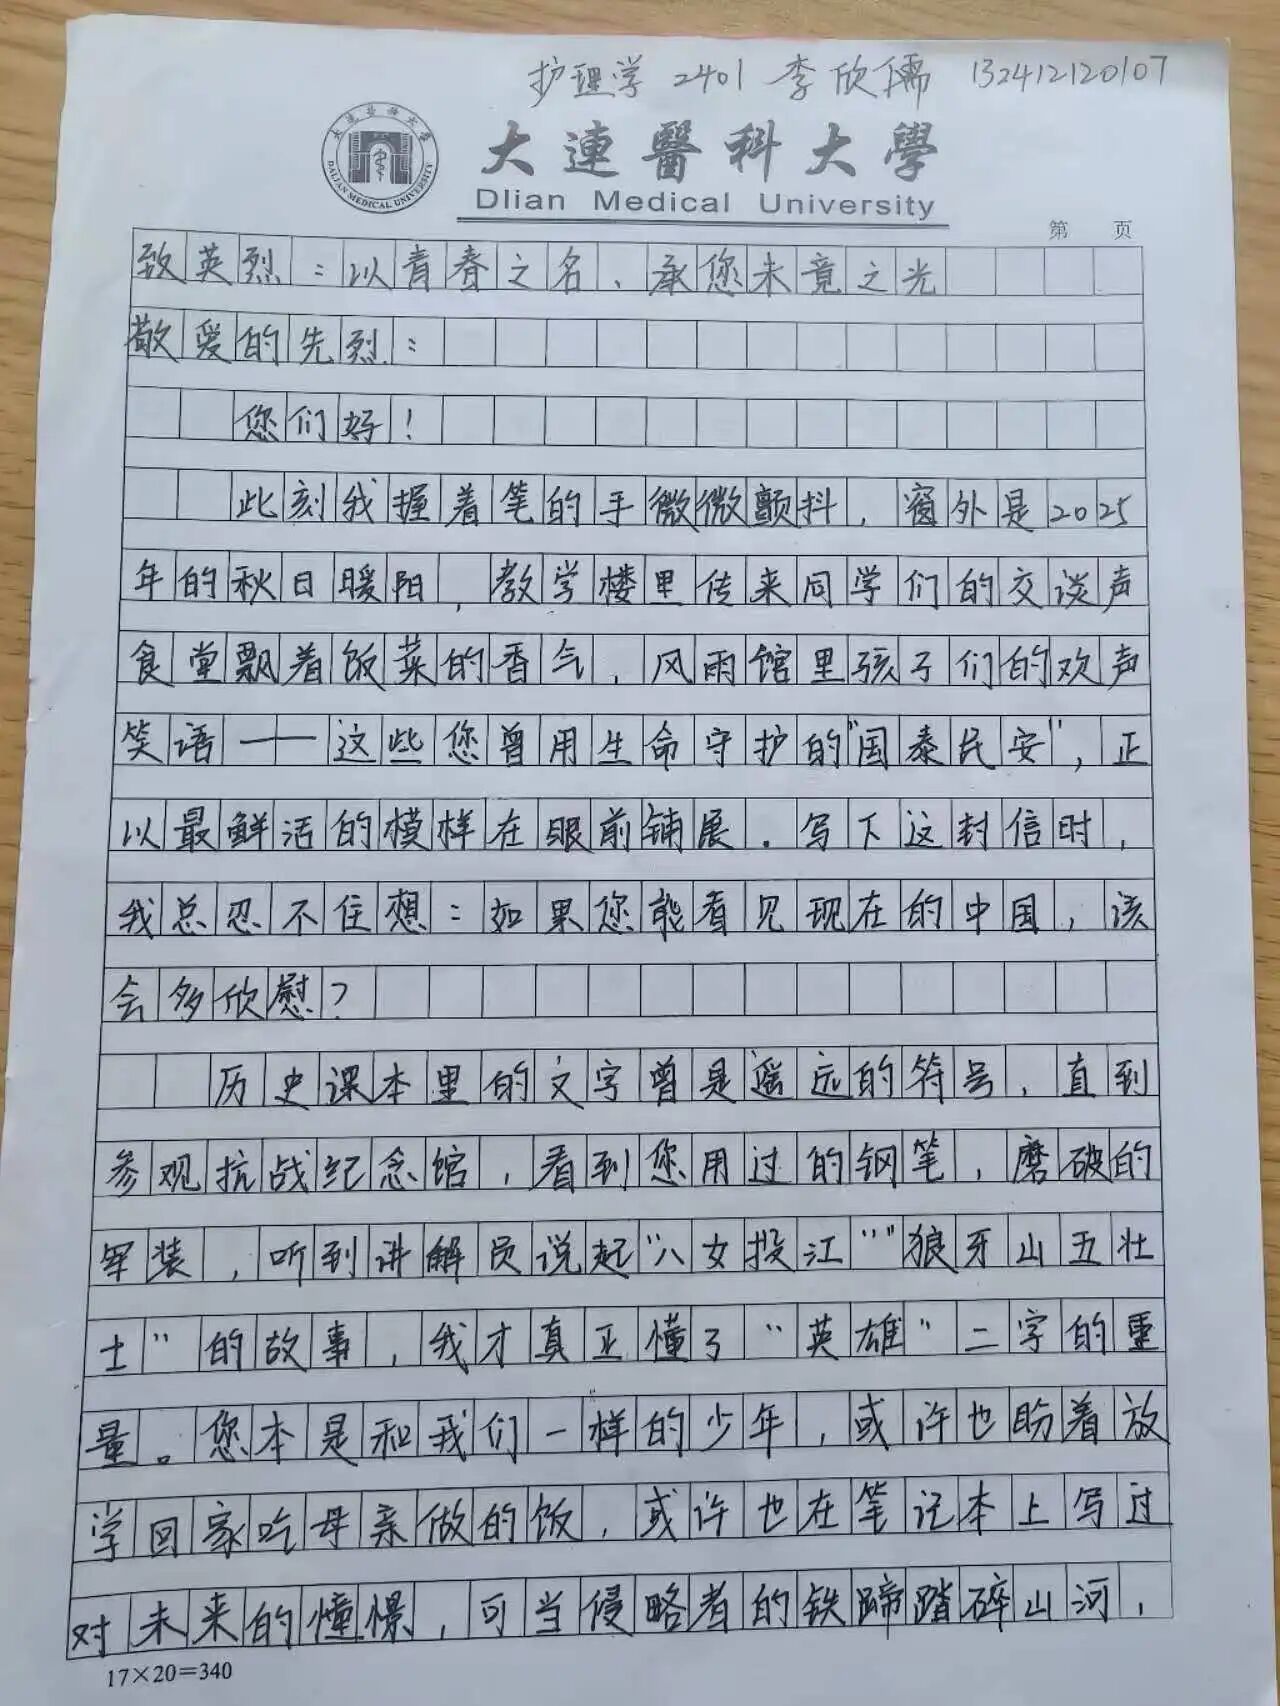 护理学 2401 李欣儒 132412120107
大連醫科大學
DALIAN MEDICAL UNIVERSITY
Dlian Medical University
第 页
致英烈:以青春之名、承您未竟之光
敬爱的先烈:
您们好!
此刻我握着笔的手微微颤抖,窗外是2025
年的秋日暖阳,教学楼里传来同学们的交谈声
食堂飘着饭菜的香气,风雨馆里孩子们的欢声
笑语——这些您曾用生命守护的"国泰民安",正
以最鲜活的模样在眼前铺展.写下这封信时,
我总忍不住想:如果您能看见现在的中国,该
会多欣慰?
历史课本里的文字曾是遥远的符号,直到
参观抗战纪念馆,看到您用过的钢笔,磨破的
军装,听到讲解员说起"八女投江""狼牙山五壮
士"的故事,我才真正懂了"英雄"二字的重
量。您本是和我们一样的少年,或许也盼着放
学回家吃母亲做的饭,或许也在笔记本上写过
对未来的憧憬,可当侵略者的铁蹄踏碎山河,
17×20=340